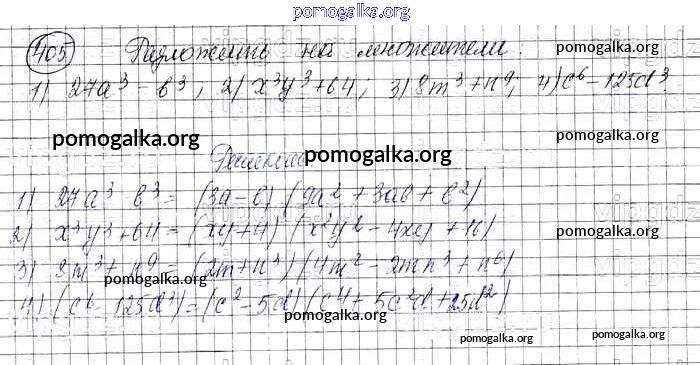 pomogalka.org
405 Разложить на множители:
1) 27a³ - b³; 2) x³y³ + 64; 3) 8m³ + n⁹; 4) c⁶ - 125d³
pomogalka.org
pomogalka.org pomogalka.org
Решение:
1) 27a³ b³ = (3a - b) (9a² + 3ab + b²)
2) x³y³ + 64 = (xy + 4) (x²y² - 4xy + 16)
pomogalka.org
3) 8m³ + n⁹ = (2m + n³) (4m² - 2mn³ + n⁶)
pomogalka.org
4) (c⁶ - 125d³) = (c² - 5d) (c⁴ + 5c²d + 25d²)
pomogalka.org
pomogalka.org pomogalka.org
pomogalka.org